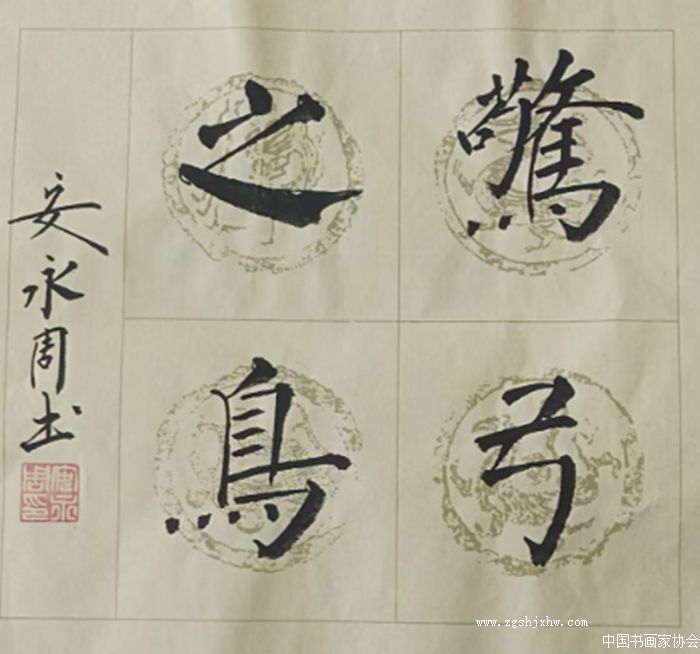 驚弓
之鳥
安永周书
安永
周印
www.zgshjxhw.com
中国书画家协会